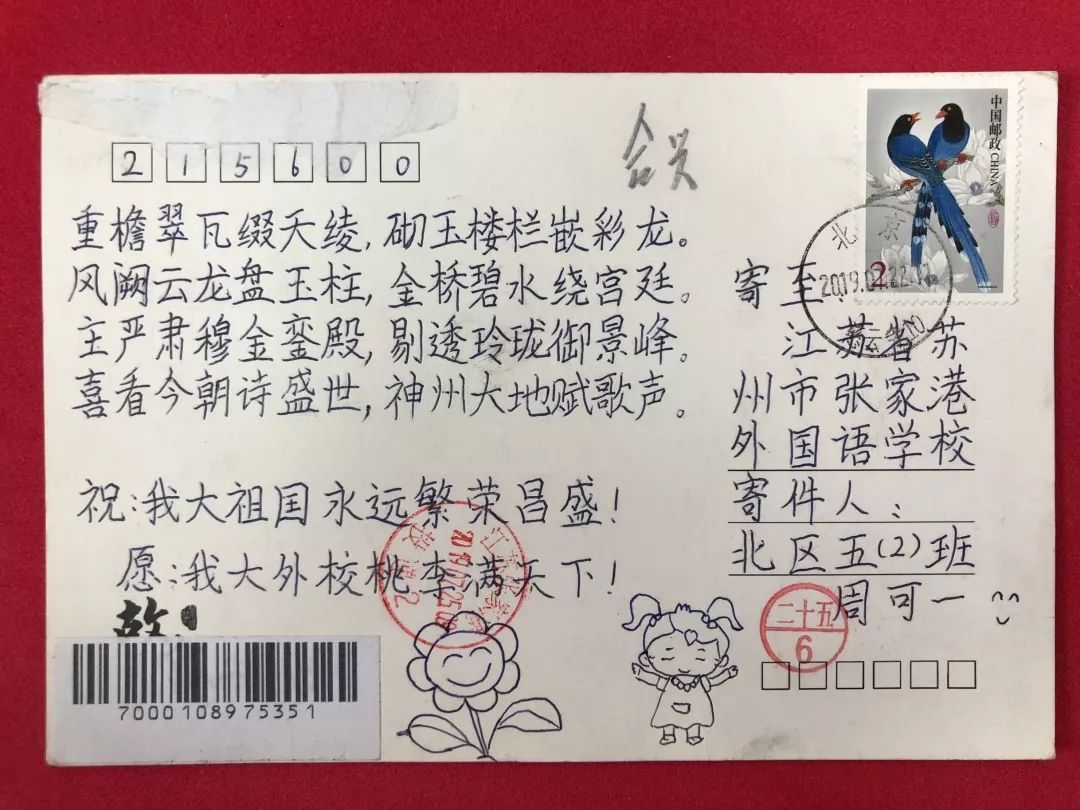 215600
重檐翠瓦缀天绫,砌玉楼栏嵌彩龙。
风阙云龙盘玉柱,金桥碧水绕宫廷。
主严肃穆金銮殿,剔透玲珑御景峰。
喜看今朝诗盛世,神州大地赋歌声。
祝:我大祖国永远繁荣昌盛!
愿:我大外校桃李满天下!
7000108975351
中国邮政 CHINA
2
北京
寄至
江苏省苏
州市张家港
外国语学校
寄件人:
北区五(2)班
周可一
二十五
6